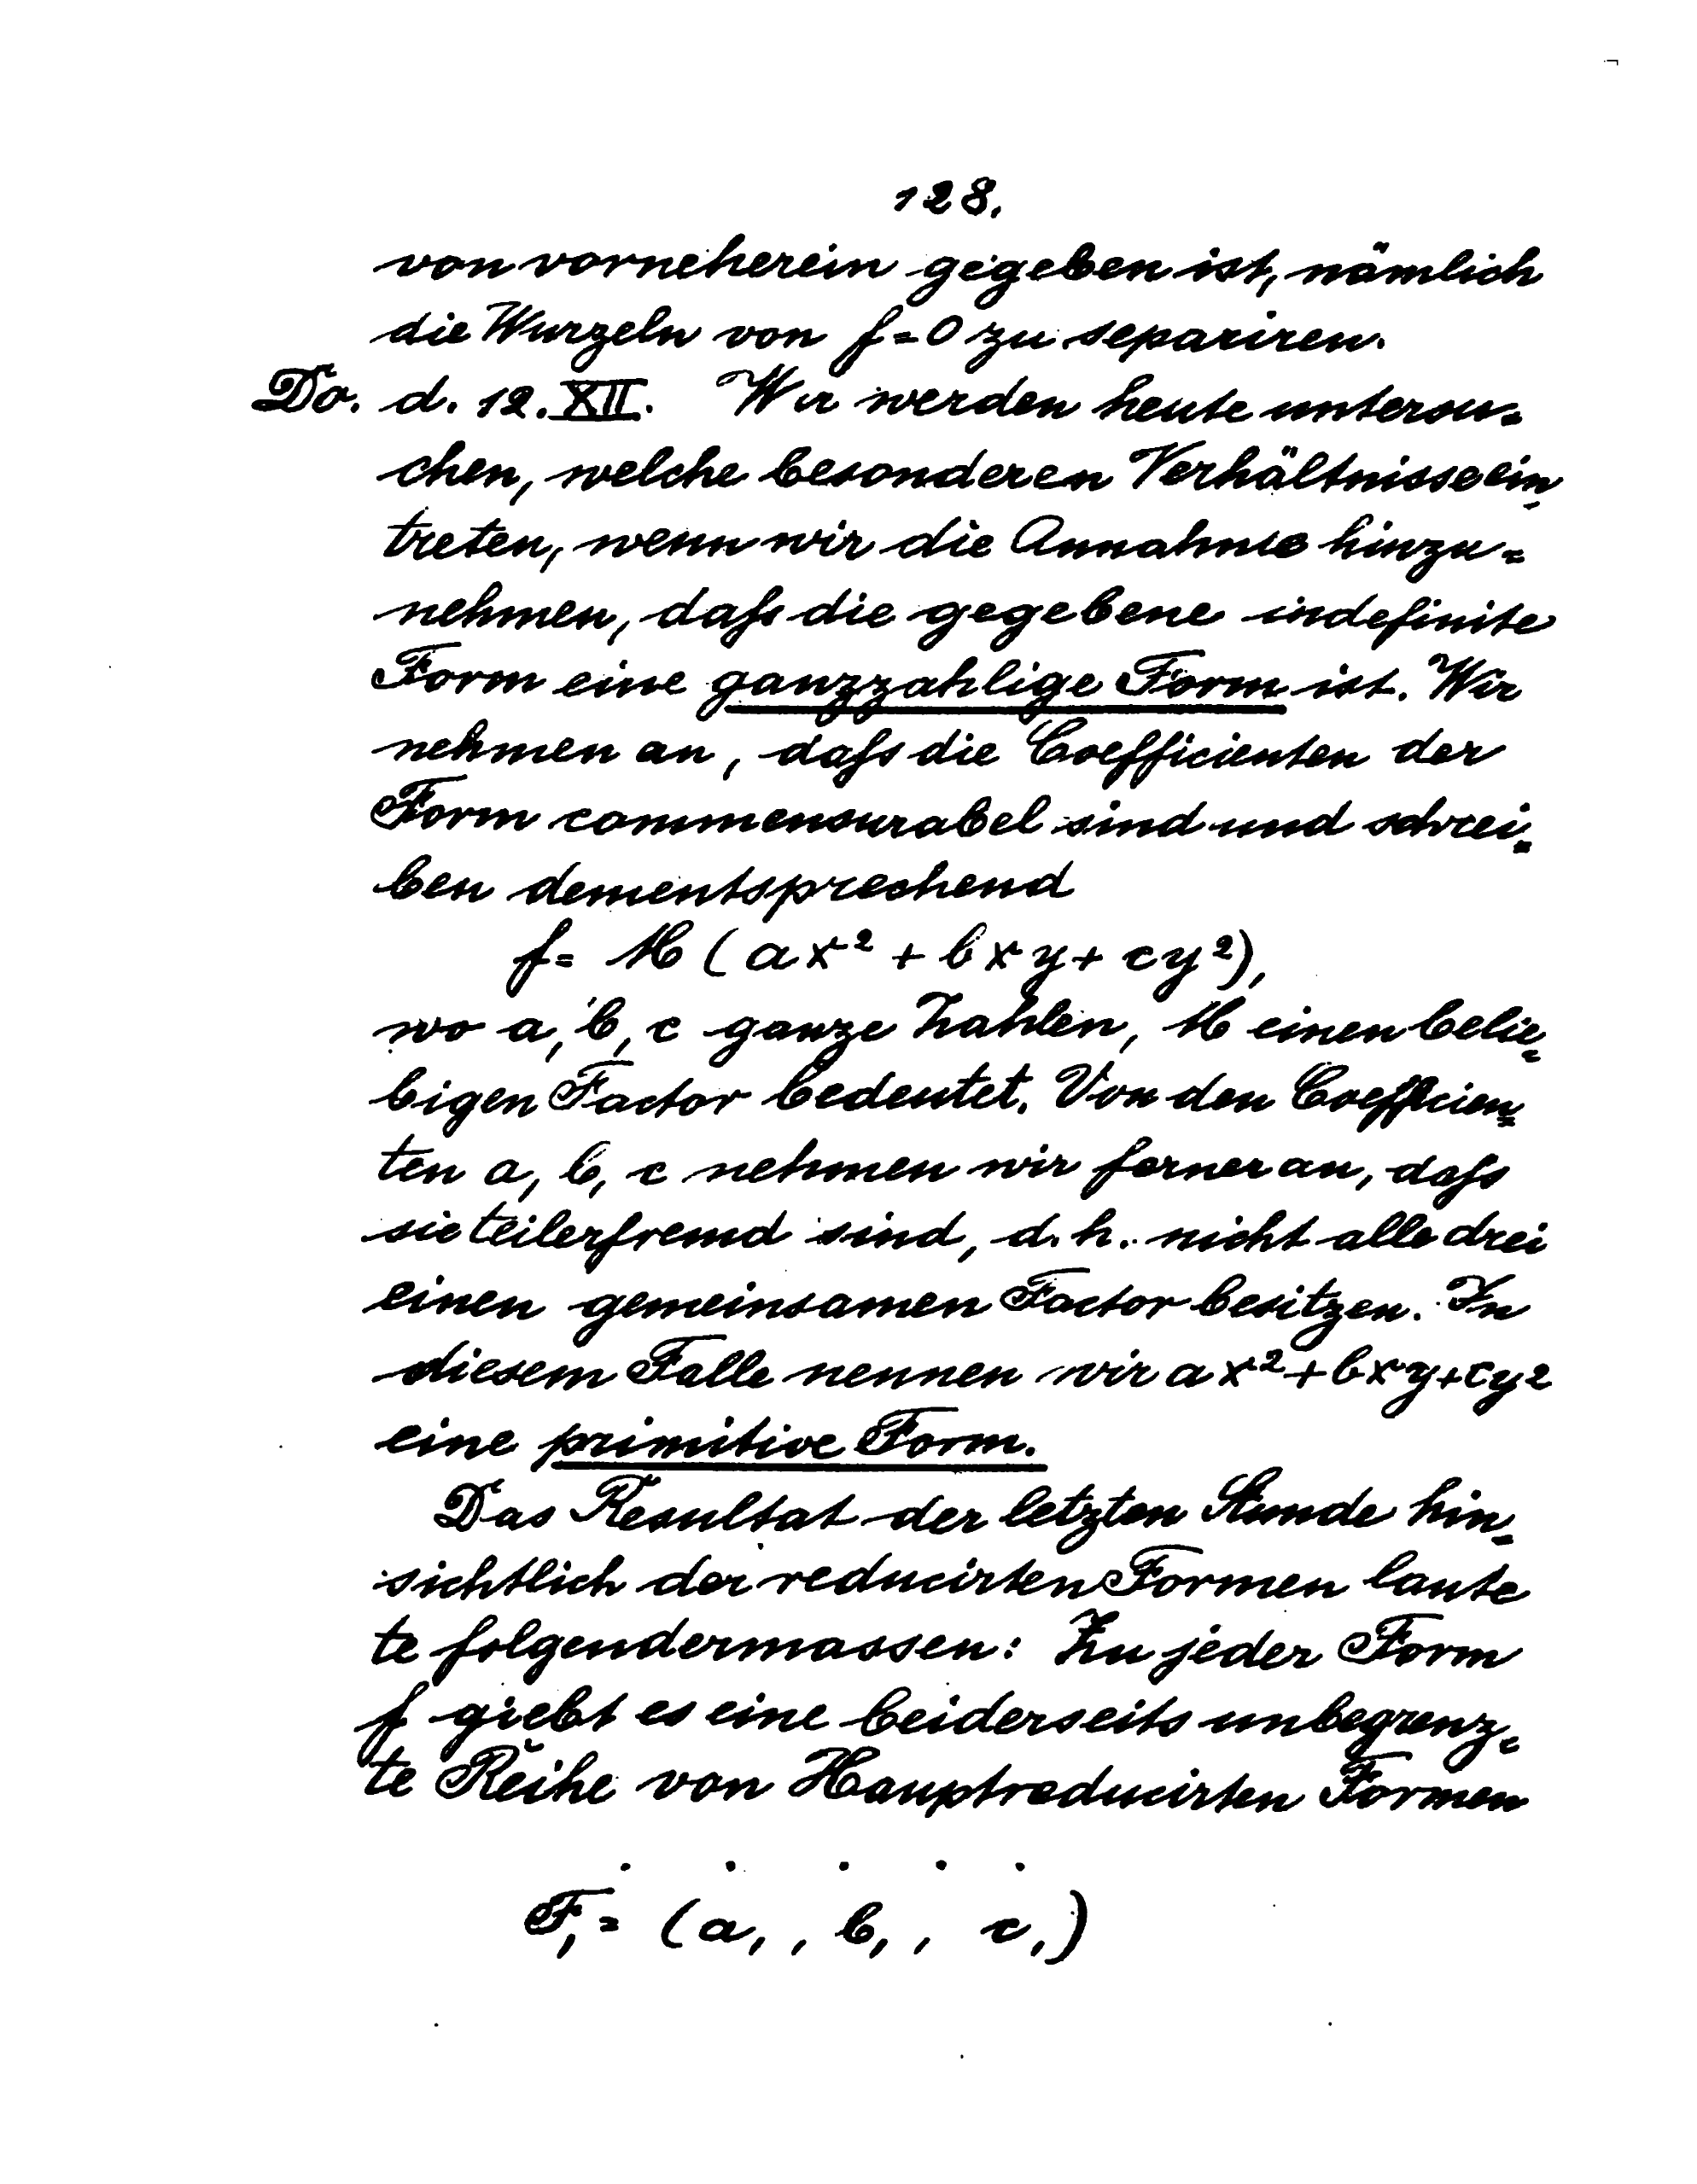 128.
von vorneherein gegeben ist, nämlich
die Wurzeln von f=0 zu separiren.
Do. d. 12. XII. Wir werden heute untersu=
chen, welche besonderen Verhältnisse ein=
treten, wenn wir die Annahme hinzu=
nehmen, daſs die gegebene indefinite
Form eine ganzzahlige Form ist. Wir
nehmen an, daſs die Coefficienten der
Form commensurabel sind und schrei=
ben dementsprechend
f= M (ax² + bxy + cy²),
wo a, b, c ganze Zahlen, M einen belie=
bigen Factor bedeutet. Von den Coefficien=
ten a, b, c nehmen wir ferner an, daſs
sie teilerfremd sind, d. h. nicht alle drei
einen gemeinsamen Factor besitzen. In
diesem Falle nennen wir ax²+bxy+cy²
eine primitive Form.
Das Resultat der letzten Stunde hin=
sichtlich der reducirten Formen laute
te folgendermassen: Zu jeder Form
f giebt es eine beiderseits unbegrenz=
te Reihe von Hauptreducirten Formen
. . . . .
F₁ = (a₁, b₁, c₁)